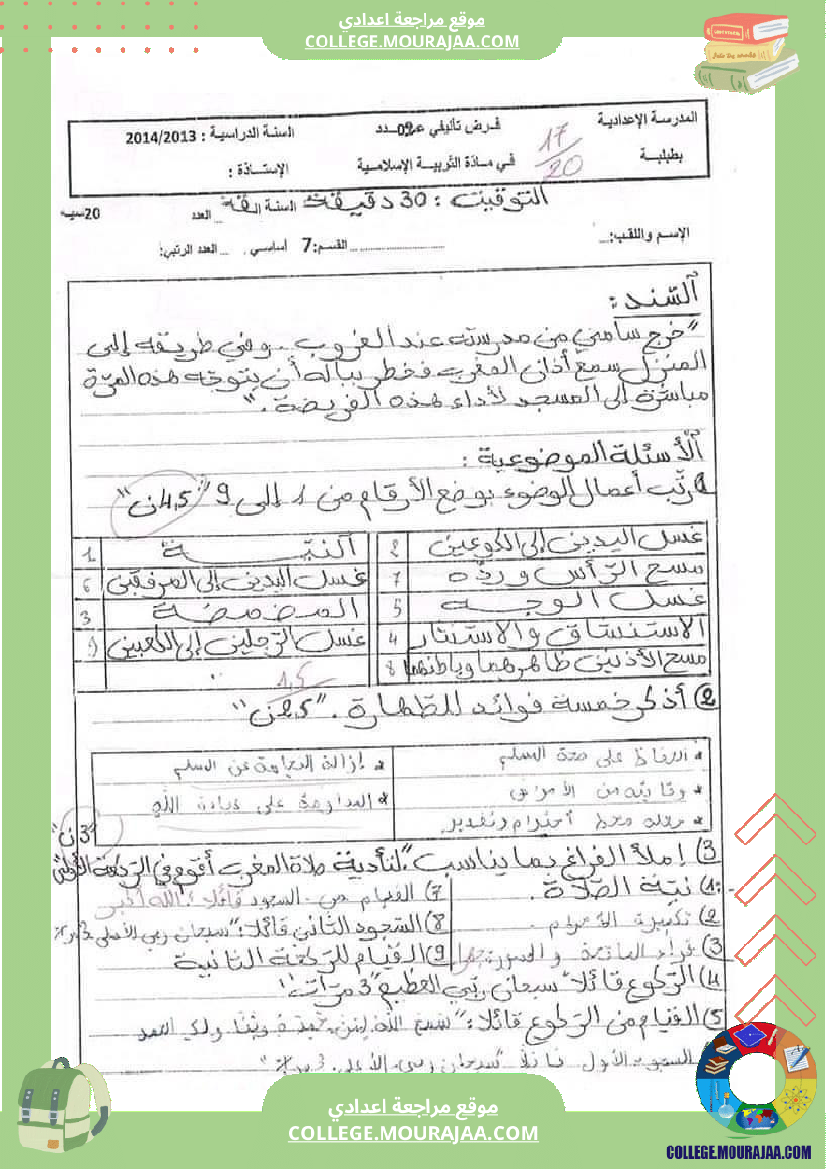 موقع مراجعة اعدادي
COLLEGE.MOURAJAA.COM
المدرسة الإعدادية
بطبلبة
فرض تأليفي عـ02ـدد
في مادة التربية الإسلامية
السنة الدراسية : 2014/2013
الإستاذة :
17/20
التوقيت : 30 دقيقة
العدد
الإسم واللقب:
القسم: 7 أساسي
العدد الرتبي:
السّند :
"خرج سامي من مدرسته عند الغروب. وفي طريقه إلى
المنزل سمع أذان المغرب فخطر بباله أن يتوجّه هذه المرّة
مباشرة إلى المسجد لأداء هذه الفريضة."
الأسئلة الموضوعية :
1 رتّب أعمال الوضوء بوضع الأرقام من 1 إلى 9 "4,5ن"
غسل اليدين إلى الكوعين 2
النيّـة 1
مسح الرّأس وردّه 7
غسل اليدين إلى المرفقين 6
غسل الوجه 5
المضمضة 3
الاستنشاق والاستنثار 4
غسل الرّجلين إلى الكعبين 9
مسح الأذنين ظاهرهما وباطنهما 8
1,5
2) أذكر خمسة فوائد للطّهارة. "2,5ن"
على صحة
* إزالة النجاسة عن
* وقايته من الأمراض
* المداومة على عبادة الله
محط احترام وتقدير
"3ن"
3) إملأ الفراغ بما يناسب: "لتأدية صلاة المغرب أقوم في الرّكعة الأولى
1) نيّة الصّلاة.
7) القيام من السجود قائلا: الله أكبر
2) تكبيرة الاحرام
8) السّجود الثاني قائلا: "سبحان ربي الأعلى 3 مرات
3) قراءة الفاتحة والسورة جهرا
9) القيام للرّكعة الثانية
4) الرّكوع قائلا "سبحان ربّي العظيم 3 مرّات"
5) القيام من الرّكوع قائلا: "سمع الله لمن حمده ولك الحمد
السجود الأول قائلا "سبحان ربي الأعلى 3 مرات"
موقع مراجعة اعدادي
COLLEGE.MOURAJAA.COM
COLLEGE.MOURAJAA.COM